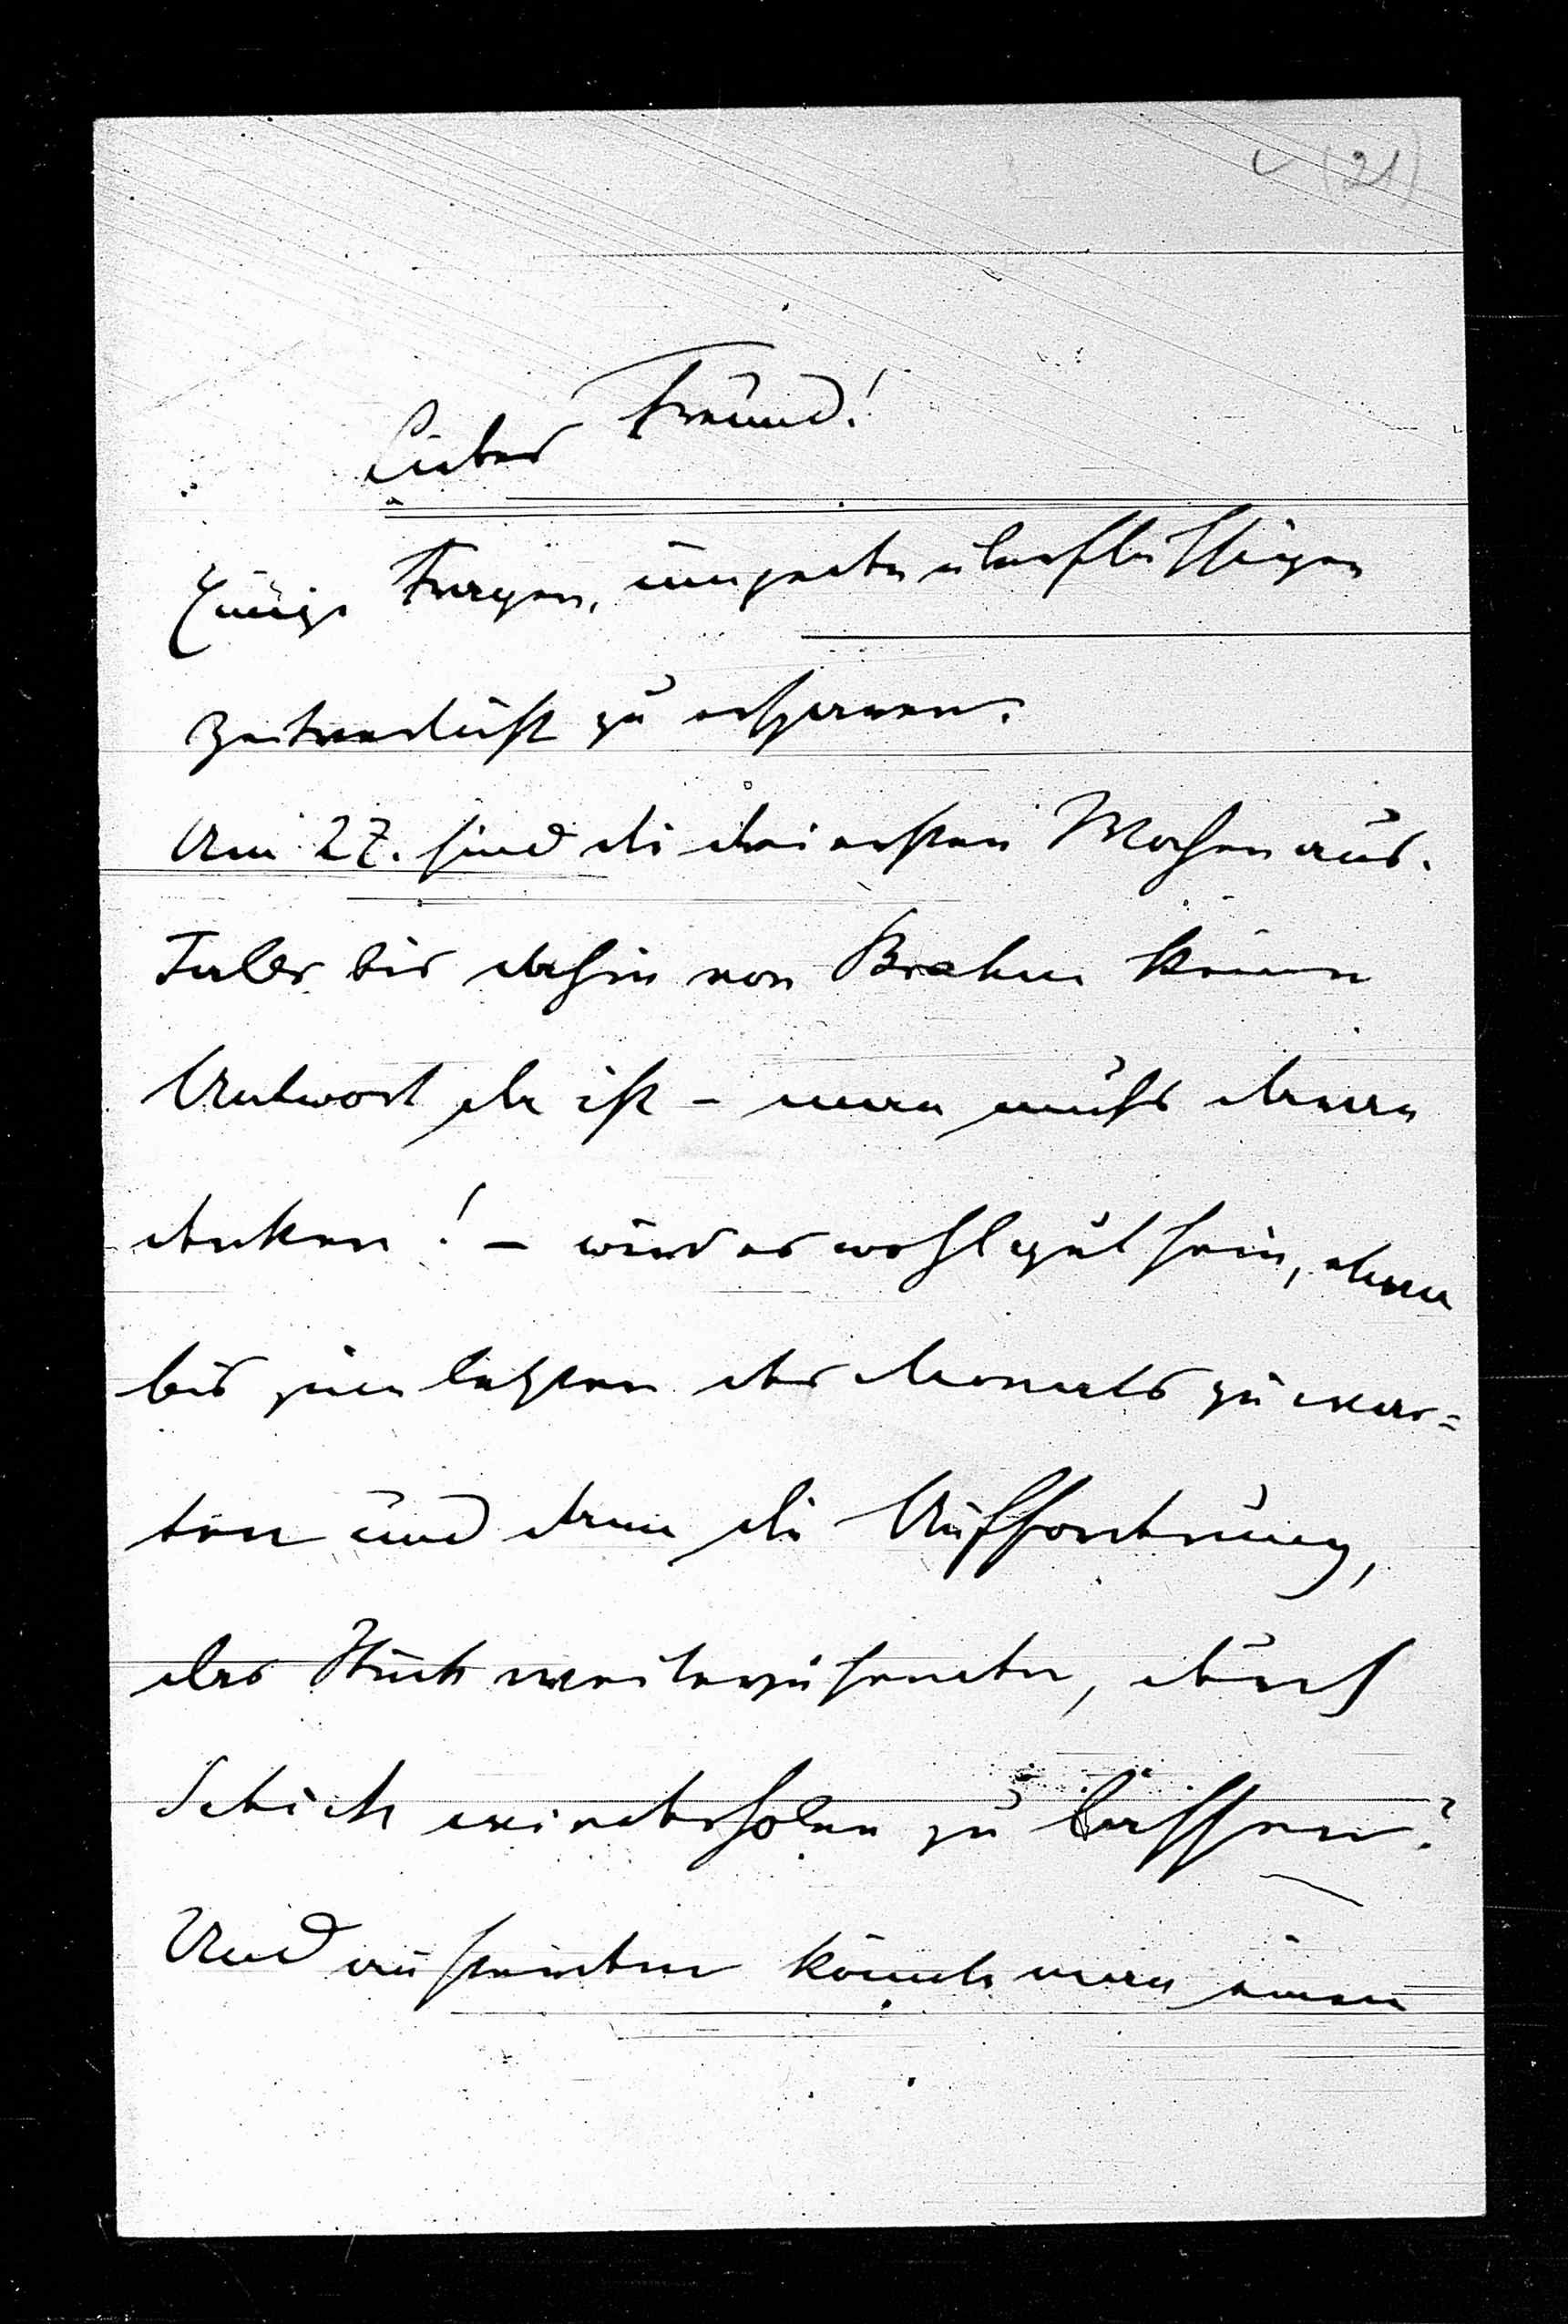 (21)
Lieber Freund!
Einige Fragen, um jeden überflüssigen
Zeitverlust zu ersparen.
Am 27. sind die drei ersten Wochen aus.
Falls bis dahin von Brahm keine
Antwort da ist – man muß daran
denken! – wird es wohl gut sein, dann
bis zum letzten des Monats zu war=
ten und dann die Aufforderung,
das Stück weiterzusenden, durch
Schick wiederholen zu lassen?
Und außerdem könnte man einen